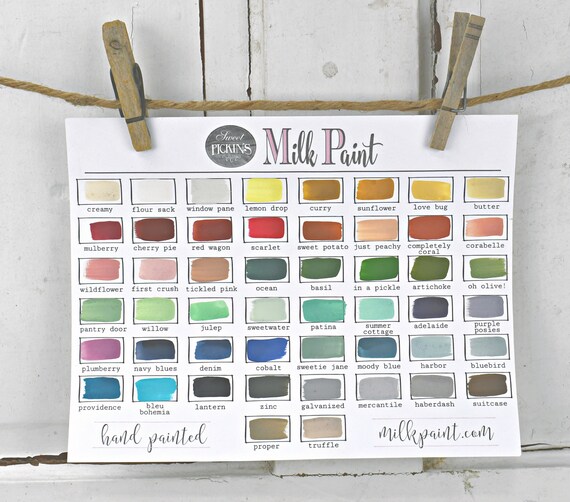 Sweet
PICKIN'S
Milk Paint
creamy flour sack window pane lemon drop curry sunflower love bug butter
mulberry cherry pie red wagon scarlet sweet potato just peachy completely coral corabelle
wildflower first crush tickled pink ocean basil in a pickle artichoke oh olive!
pantry door willow julep sweetwater patina summer cottage adelaide purple posies
plumberry navy blues denim cobalt sweetie jane moody blue harbor bluebird
providence bleu bohemia lantern zinc galvanized mercantile haberdash suitcase
hand painted proper truffle milkpaint.com